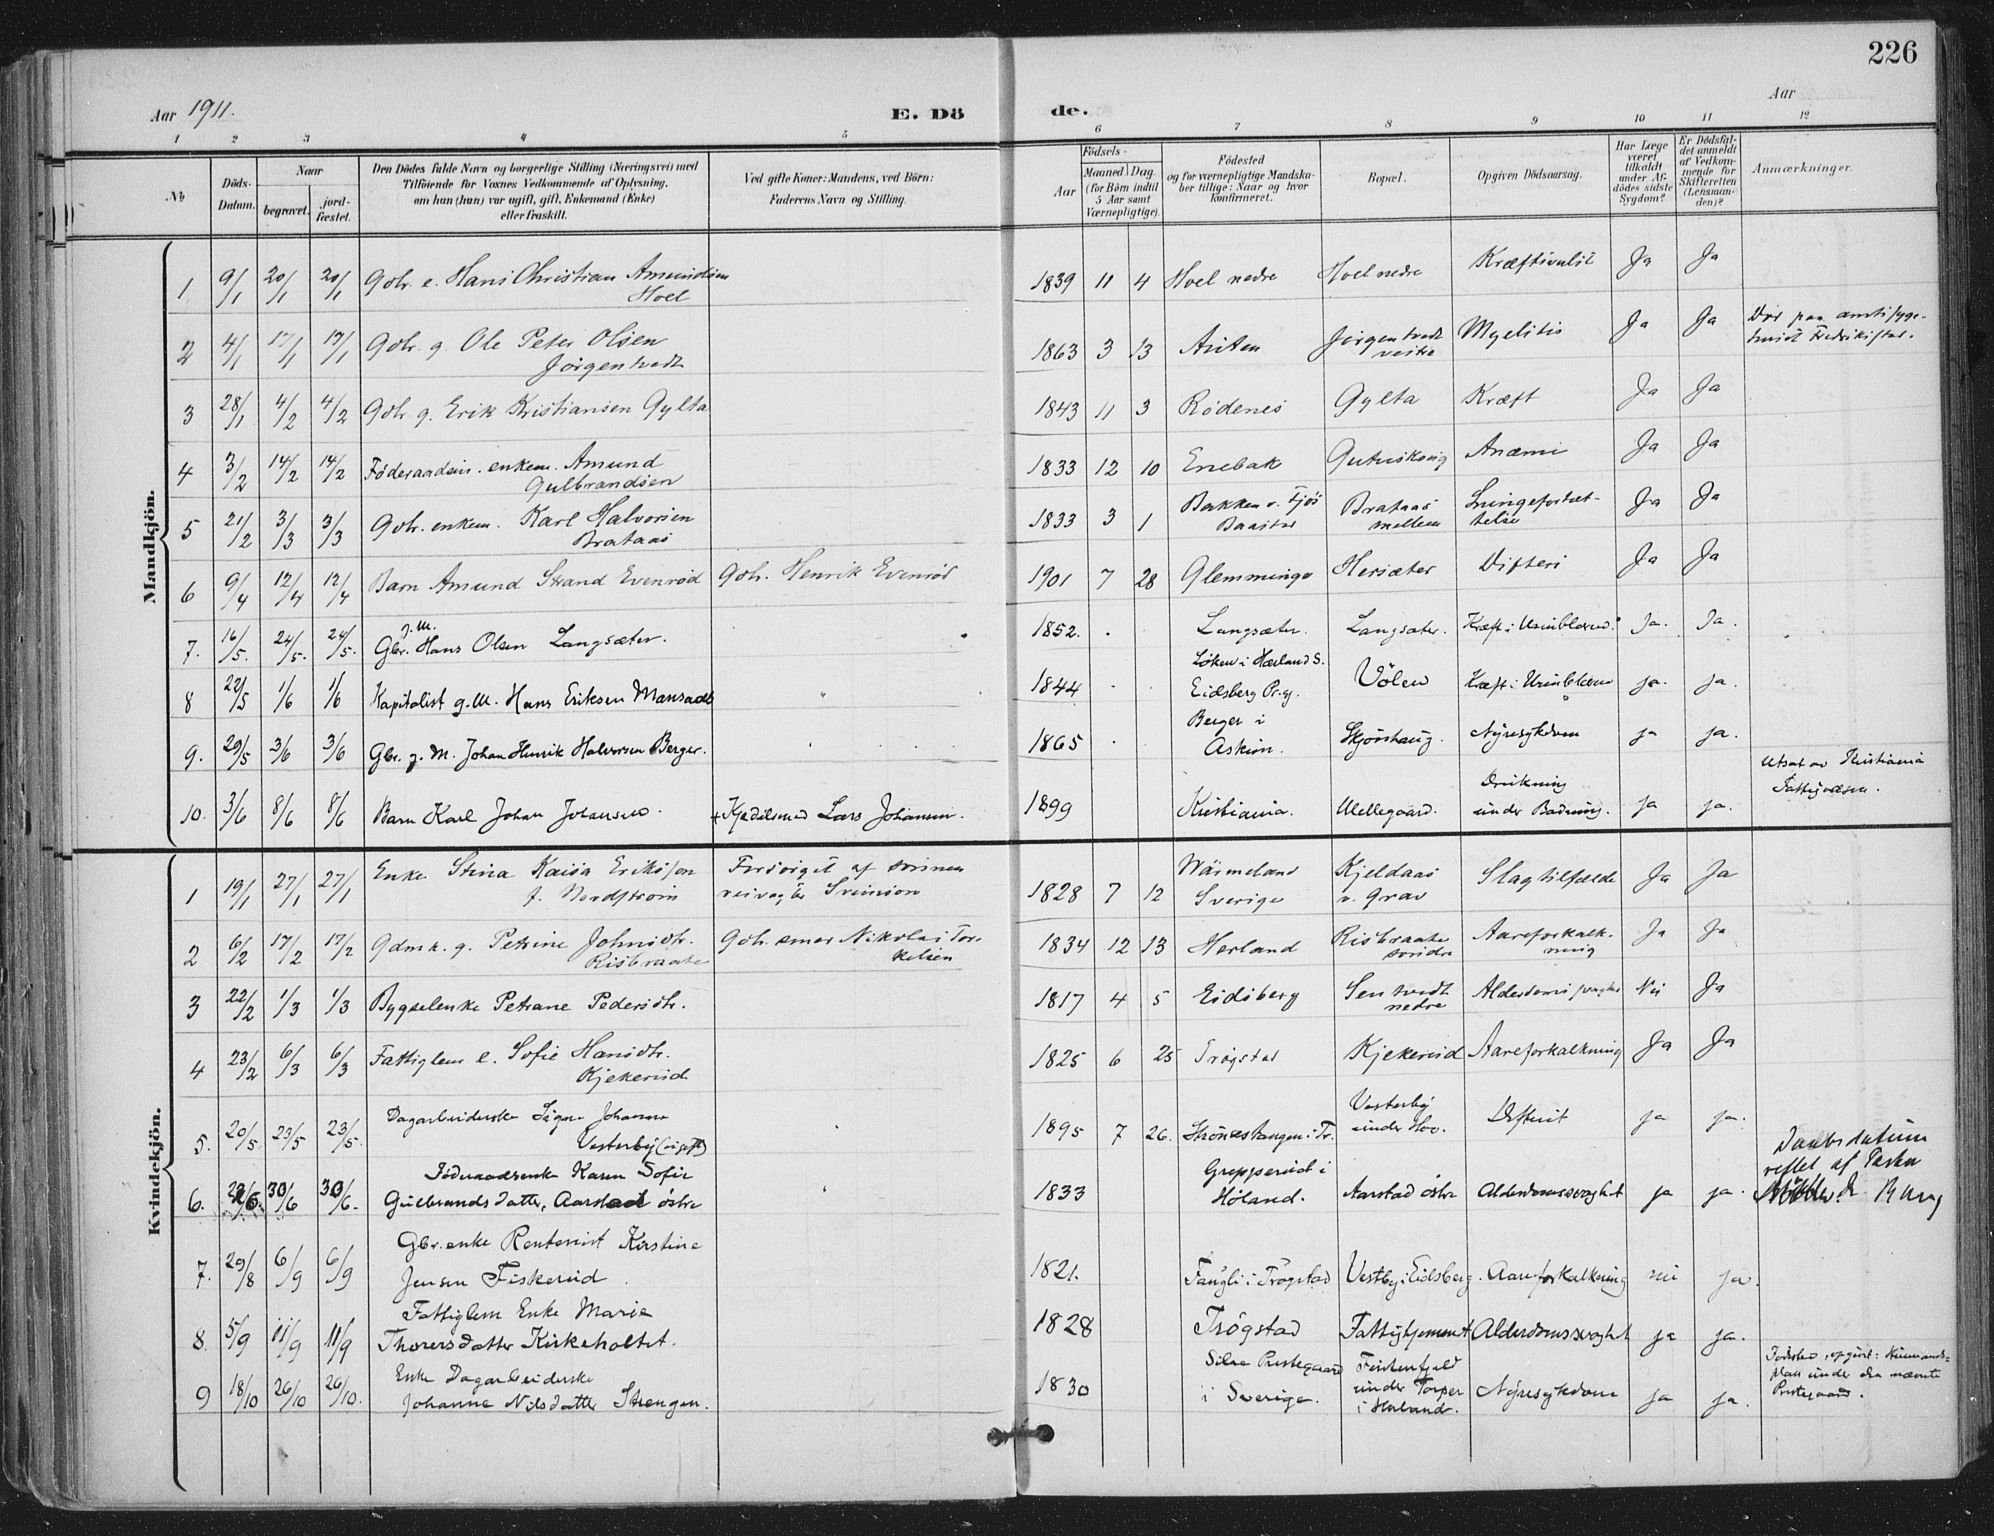 226
Aar 1911.
E. Dö de.
Aar
1 2 3 4 5 6 7 8 9 10 11 12
No
Döds-Datum.
Naar
begravet.
jord-fæstet.
Den Dödes fulde Navn og borgerlige Stilling (Næringsvei) med
Tilföiende for Voxnes Vedkommende af Oplysning,
om han (hun) var ugift, gift, Enkemand (Enke)
eller fraskilt.
Ved gifte Koner: Mandens, ved Börn:
Faderens Navn og Stilling.
Födsels-
Aar
Maaned Dag
(for Börn indtil
5 Aar samt
Værnepligtige).
Födested
og for værnepligtige Mandska-
ber tillige: Naar og hvor
konfirmeret.
Bopæl.
Opgiven Dödsaarsag.
Har Læge
været
tilkaldt
under Af-
dödes sidste
Sygdom?
Er Dödsfal-
det anmeldt
af Vedkom-
mende for
Skifteretten
(Lensman-
den)?
Anmærkninger.
Mandkjön.
1 9/1 20/1 20/1 Gbr. e. Hans Christian Amundsen 1839 11 4 Hoel nedre Hoel nedre Ja Ja
Hoel
2 4/1 17/1 17/1 Gbr. g Ole Peter Olsen 1863 3 13 Jörgentvedt Myelitis Ja Ja Dør paa amtssyge-
Jörgentvedt vestre huset Fredrikstad.
3 28/1 4/2 4/2 Gbr. g. Erik Kristiansen Gylta 1843 11 3 Rödenes Gylta Kræft Ja Ja
4 3/2 14/2 14/2 Föderaadsm. enkem. Amund 1833 12 10 Enebak Anæmi Ja Ja
Gulbrandsen
5 21/2 3/3 3/3 Gbr. enkem. Karl Halvorsen 1833 3 1 Bakken u. Brataas Ja Ja
Brataas Baastad mellem
6 9/4 12/4 12/4 Barn Amund Strand Evenröd Gbr. Henrik Evenröd 1901 7 28 Glemminge Hersæter Difteri Ja Ja
7. 16/5. 24/5. 24/5. Gbr. g.M. Hans Olsen Langsæter. 1852. Langsæter. Langsæter. Kræft i Urinblæren. Ja. Ja.
8 22/5 1/6 1/6 Kapitalist g.M. Hans Eriksen 1844 Løken i Hærland S. Völen Kræft i Urinblæren ja. ja.
Eidsberg Pr.gj.
9. 29/5 3/6 3/6 Gbr. g. M. Johan Henrik Halvorsen Berger. 1865 Berger i Nyresykdom ja ja.
Askim.
10. 3/6 8/6 8/6 Barn Karl Johan Johansen. Kjedelsmed Lars Johansen. 1899 Kristiania. Mellegaard. Drukning ja ja. Utsat av Kristiania
under Badning. Fattigvæsen.
Kvindekjön.
1 19/1 27/1 27/1 Enke Stina Kaisa Eriksson Forsörget af 1828 7 12 Wärmeland Kjeldaas Slagtilfælde Ja Ja
f. Nordström Sverige
2 6/2 17/2 17/2 Gdmk. g. Petrine Johnsdtr. Gbr. Nikolai Tor- 1834 12 13 Herland Risbraate Aareforkalk- Ja Ja
Risbraate kelsen söndre ning
3 22/2 1/3 1/3 Bygselenke Petrane Pedersdtr. 1817 4 5 Eidsberg Sentvedt Nei Ja
nedre
4 23/2 6/3 6/3 Fattiglem e. Sofie Hansdtr. 1825 6 25 Trögstad Kjekerud Aareforkalkning Ja Ja
Kjekerud
5. 20/5 23/5 23/5. Dagarbeiderske Signe Johanne 1895 7 26. Vesterby Difterit ja ja.
Vesterby (ugift) under Hov.
6. 30/6 30/6. Föderaadsenke Karen Sofie 1833 Greppperud i Aarstad östre Alderdomssvaghet ja ja. Daabsdatum
Gulbrandsdatter, Aarstad östre Höland. rettet af
7. 29/8 6/9 6/9 Gbr.enke Rentenist Kirstine 1821. i Trögstad Vestby i Eidsberg. Aareforkalkning nei ja.
Jensen Fiskerud
8. 5/9 11/9 11/9 Fattiglem Enke Marie 1828 Trögstad Fattighjemmet Alderdomssvaghet ja ja.
Thorersdatter Kirkeholtet.
9 18/10 26/10 26/10. Enke Dagarbeiderske 1830 Prestegaard Nyresykdom ja ja. Födested, opgivet: Husmands-
Johanne Nilsdatter Strengen. i Sverige. under Torper plass under den nævnte
i Herland. Prestegaard.